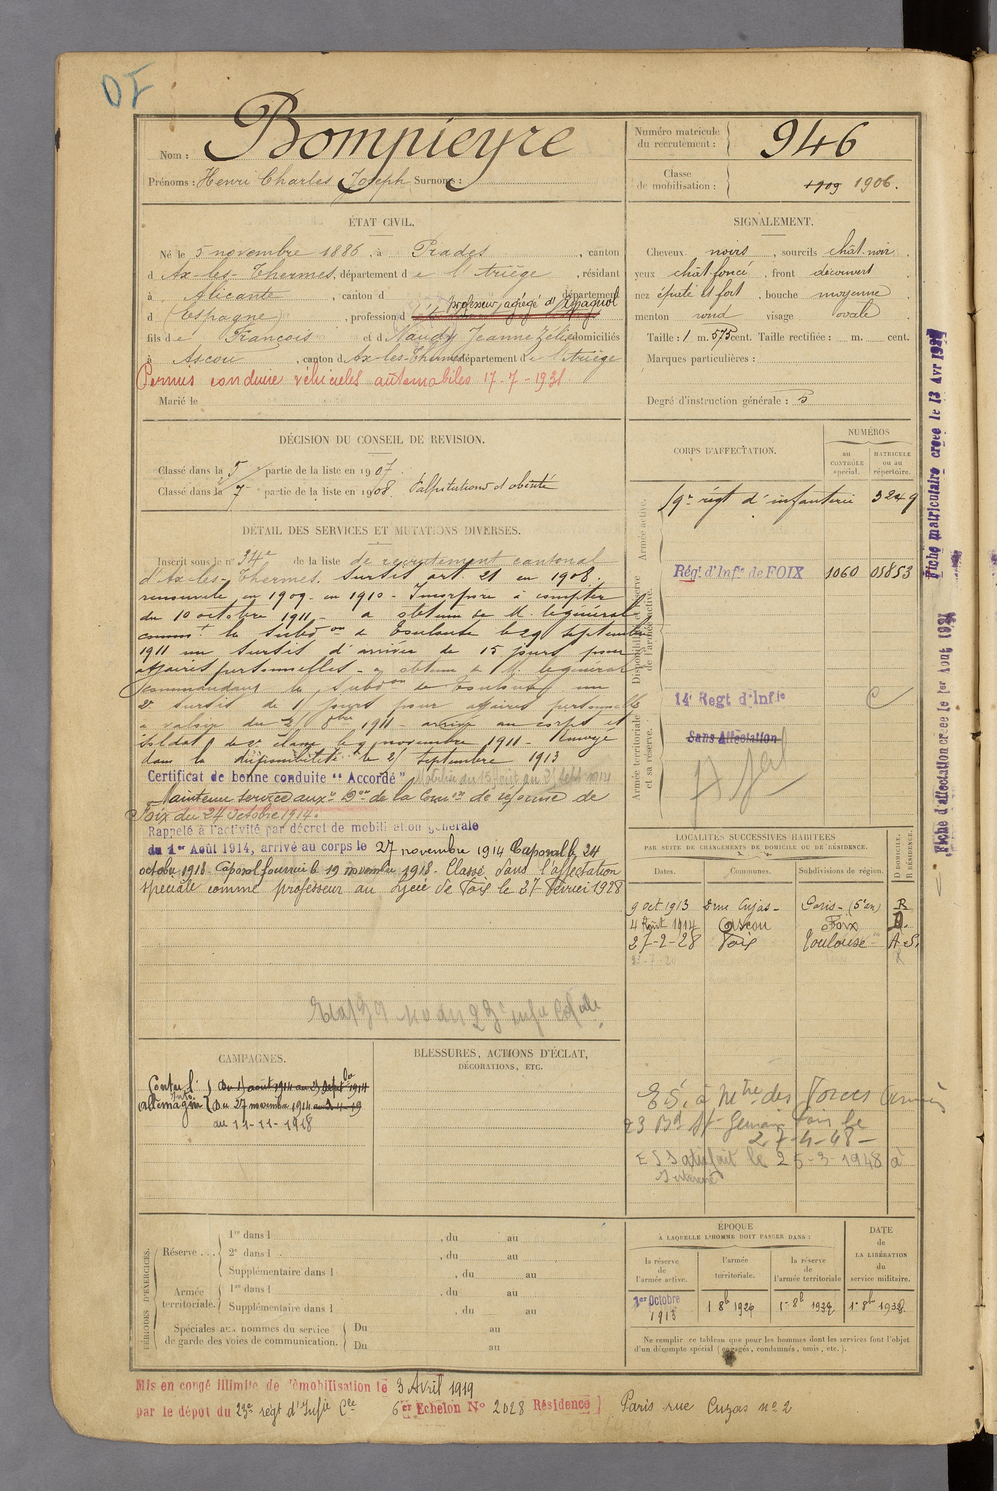 DF
Nom : Bompieyre
Prénoms : Henri Charles Joseph Surnoms :
Numéro matricule du recrutement : 946
Classe de mobilisation : 1909 1906.
ÉTAT CIVIL.
Né le 5 novembre 1886, à Prades, canton
d Ax-les-Thermes, département de l'Ariège, résidant
à Alicante, canton d département
d (Espagne), profession d professeur agrégé d'Espagnol
fils de François et d Naudy Jeanne Zélie domiciliés
à Ascou, canton d'Ax-les-Thermes département de l'Ariège
Permis conduire véhicules automobiles 17-7-1931
Marié le
SIGNALEMENT.
Cheveux noirs, sourcils chât. noir
yeux chât. foncé, front découvert
nez épaté et fort, bouche moyenne
menton rond visage ovale
Taille : 1 m. 575 cent. Taille rectifiée : m. cent.
Marques particulières :
Degré d'instruction générale : 5
DÉCISION DU CONSEIL DE REVISION.
Classé dans la 5 partie de la liste en 1907.
Classé dans la 7 partie de la liste en 1908. Palpitations et obésité
CORPS D'AFFECTATION.
NUMÉROS
AU CONTRÔLE spécial.
MATRICULE ou au répertoire.
Armée active.
19e régt d'infanterie 3249
Disponibilité et réserve de l'armée active.
Régt d'Infie de FOIX 1060 05853
Armée territoriale et sa réserve.
14e Regt d'Infie
Sans Affectation
DÉTAIL DES SERVICES ET MUTATIONS DIVERSES.
Inscrit sous le n° 34e de la liste de recrutement cantonal
d'Ax-les-Thermes. Sursis art 21 en 1908.
renouvelé en 1909 en 1910 - Incorporé à compter
du 10 octobre 1911 - a obtenu de M. le général
comm't la Subdon de Toulouse le 29 Septembre
1911 un sursis d'arrivée de 15 jours pour
affaires personnelles - a obtenu de M. le général
commandant la Subdon de Toulouse un
2e sursis de jours pour affaires personnelles
à valoir du 8bre 1911 - arrivé au corps et
soldat de 2e classe le 9 novembre 1911 - Envoyé
dans la disponibilité le 2 Septembre 1913
Certificat de bonne conduite "Accordé"
Maintenu service auxre Don de la Comon de réforme de
Foix du 24 octobre 1914.
Rappelé à l'activité par décret de mobilisation générale
du 1er Août 1914, arrivé au corps le 27 novembre 1914 Caporal le 24
octobre 1918 Caporal fourrier le 19 novembre 1918. Classé dans l'affectation
spéciale comme professeur au lycée de Foix le 2 Février 1928
LOCALITÉS SUCCESSIVES HABITÉES
PAR SUITE DE CHANGEMENTS DE DOMICILE OU DE RÉSIDENCE.
Dates. Communes. Subdivisions de région. D DOMICILE. R RÉSIDENCE.
9 oct 1913 2 rue Cujas - Paris - (5e arr) R
4 Août 1914 Ascou Foix D.
27-2-28 Foix Toulouse A.S.
CAMPAGNES.
Contre l'Allemagne
Du 27 novembre 1914
au 11-11-1918
BLESSURES, ACTIONS D'ÉCLAT,
DÉCORATIONS, ETC.
E.S. à Mtre des Forces Armées
23 Bd St Germain Paris le
27-4-48 -
E S Satisfait le 25-3-1948 à
PÉRIODES D'EXERCICES.
Réserve ...
1re dans l , du au
2e dans l , du au
Supplémentaire dans l , du au
Armée territoriale.
1re dans l , du au
Supplémentaire dans l , du au
Spéciales aux hommes du service de garde des voies de communication.
Du au
Du au
ÉPOQUE
À LAQUELLE L'HOMME DOIT PASSER DANS :
la réserve de l'armée active.
l'armée territoriale.
la réserve de l'armée territoriale
DATE de LA LIBÉRATION du service militaire.
1er Octobre 1913
Ne remplir ce tableau que pour les hommes dont les services font l'objet
d'un décompte spécial (engagés, condamnés, omis, etc.).
Mis en congé illimité de démobilisation le 3 Avril 1919
par le dépôt du 23e régt d'Infie Cle 6er Echelon N° 2028 Résidence Paris rue Cujas n° 2
Fiche matriculaire créée le 13 Avr 1931
Fiche d'affectation créée le 1er Août 1931